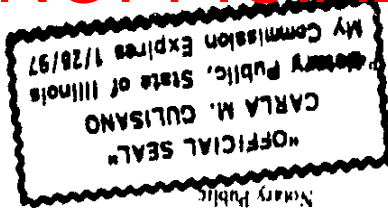 Notary Public
"OFFICIAL SEAL"
CARLA M. GULISANO
Notary Public, State of Illinois
My Commission Expires 1/28/97